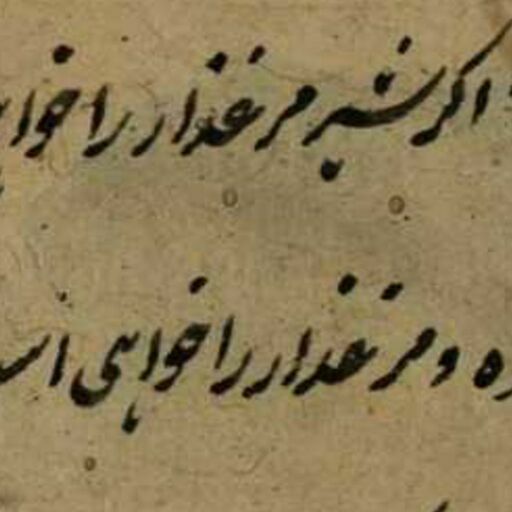 اگر شیر مرغزار را خوا
ه و مرغزار را خواهی اس